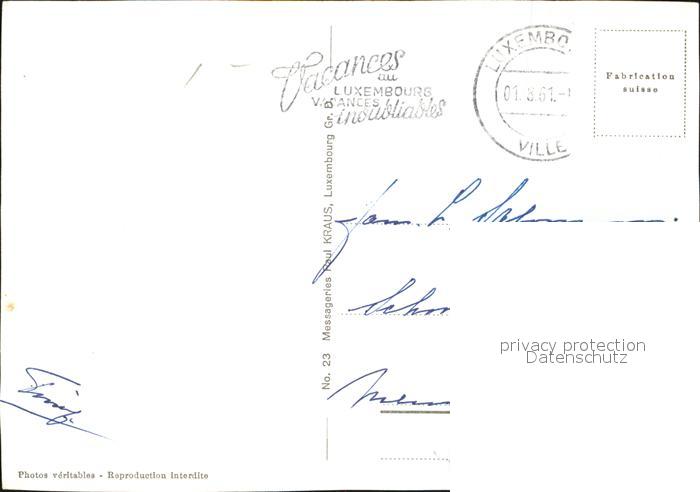 Vacances
au
LUXEMBOURG
VACANCES
inoubliables
LUXEMBO
01. 8.61.-
VILLE
Fabrication
suisse
No. 23 Messageries Paul KRAUS, Luxembourg Gr. D.
Fam. L.
privacy protection
Datenschutz
Photos véritables - Reproduction interdite